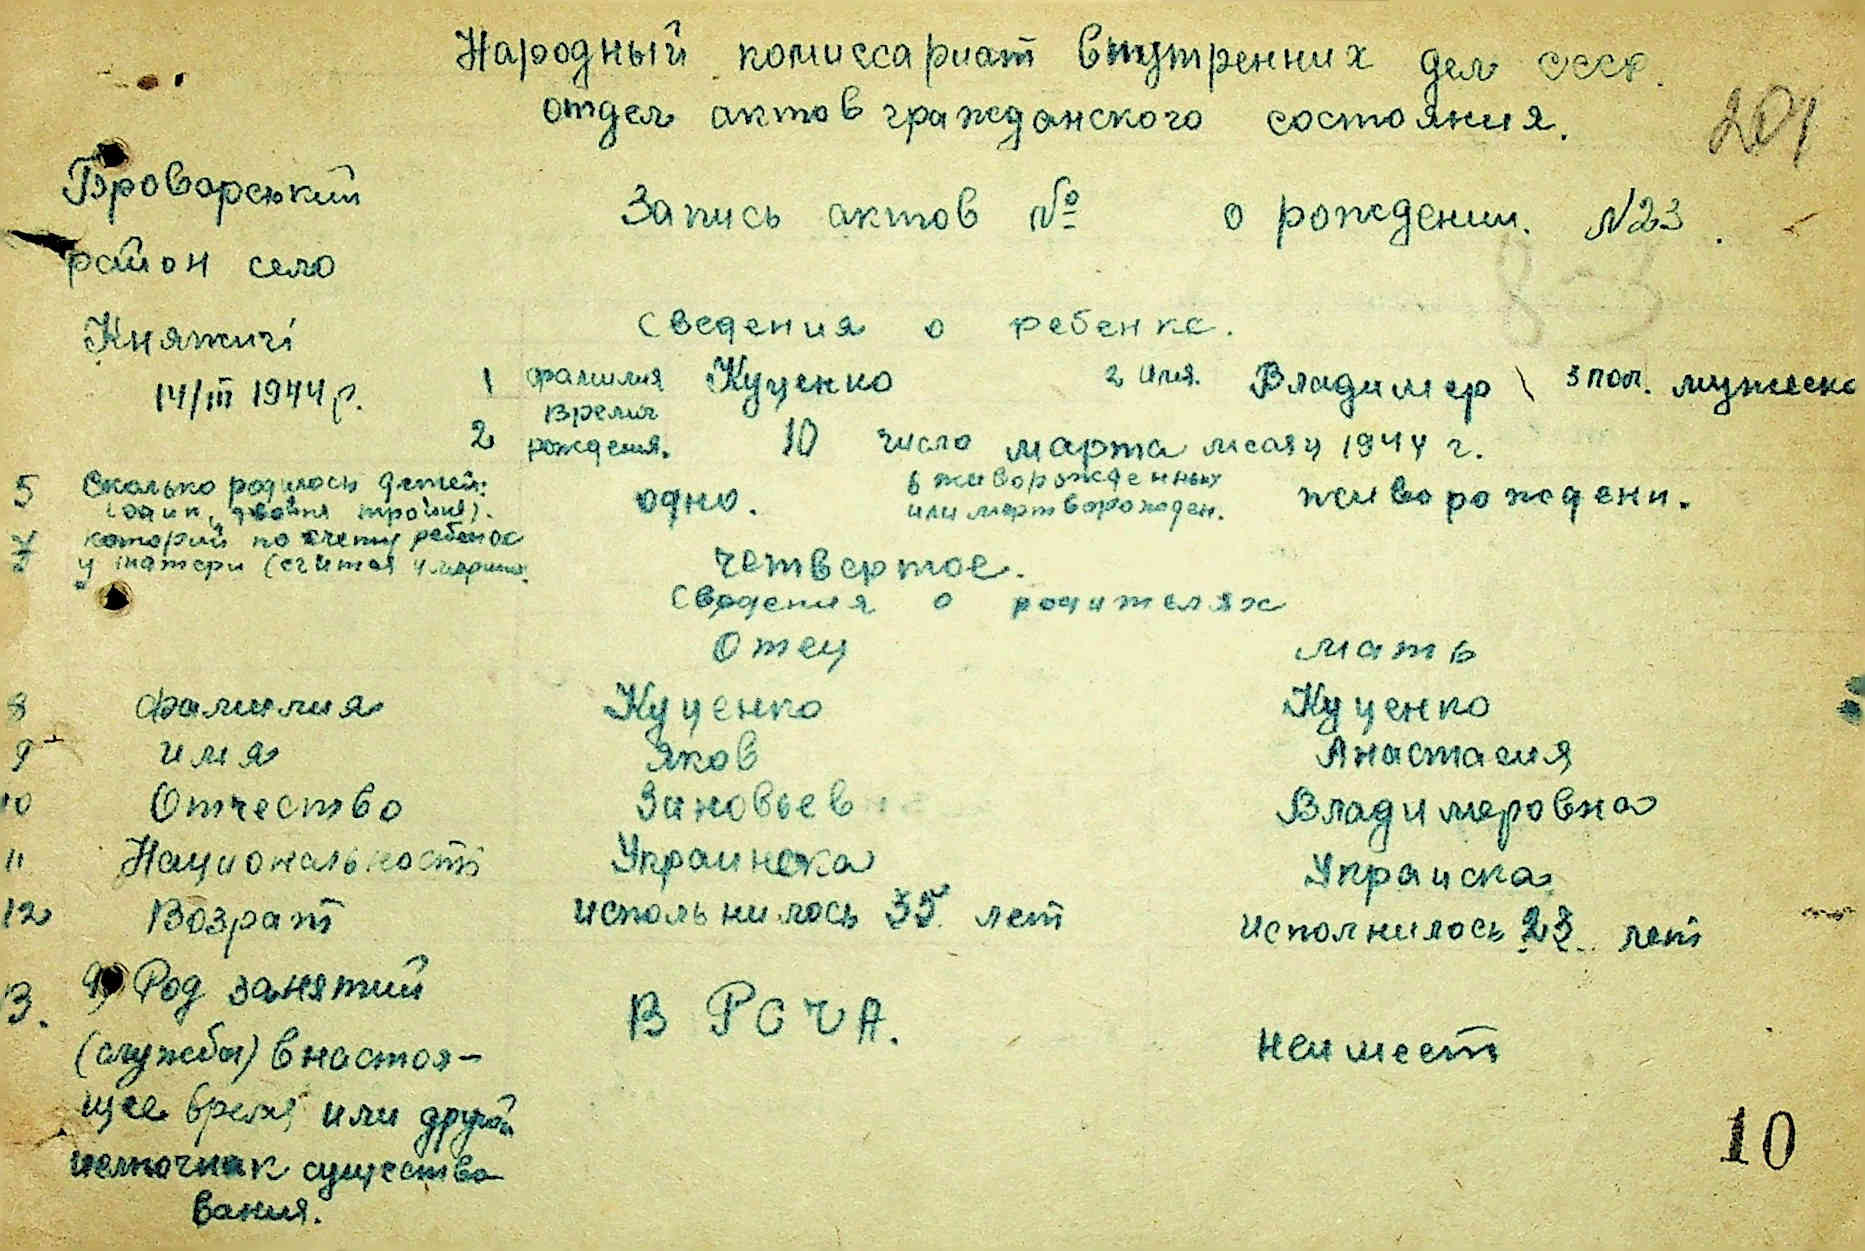 Народный комиссариат внутренних дел СССР.
отдел актов гражданского состояния.
201
Броварський
район село
Княжичі
14/III 1944 р.
Запись актов № о рождении. N23.
Сведения о ребенке.
1 фамилия Куценко 2 имя. Владимер 3 пол. мужеско
2 Время рождения. 10 число марта месяц 1944 г.
5 Сколько родилось детей: (один, двойня тройня). одно. 6 живорожденных или мертворожден. живорождени.
7 которий по счету ребенок у матери (считая умерших. четвертое.
Сведения о родителях
Отец мать
8 Фамилия Куценко Куценко
9 имя Яков Анастасия
10 Отчество Зиновьев Владимеровна
11 Национальность Украинска Украиска
12 Возраст испольнилось 35 лет исполнилось 23 лет
13. а) Род занятий В РСЧА. неимеет
(службы) в настоя-
щее время или другой
источник существо
вания.
10